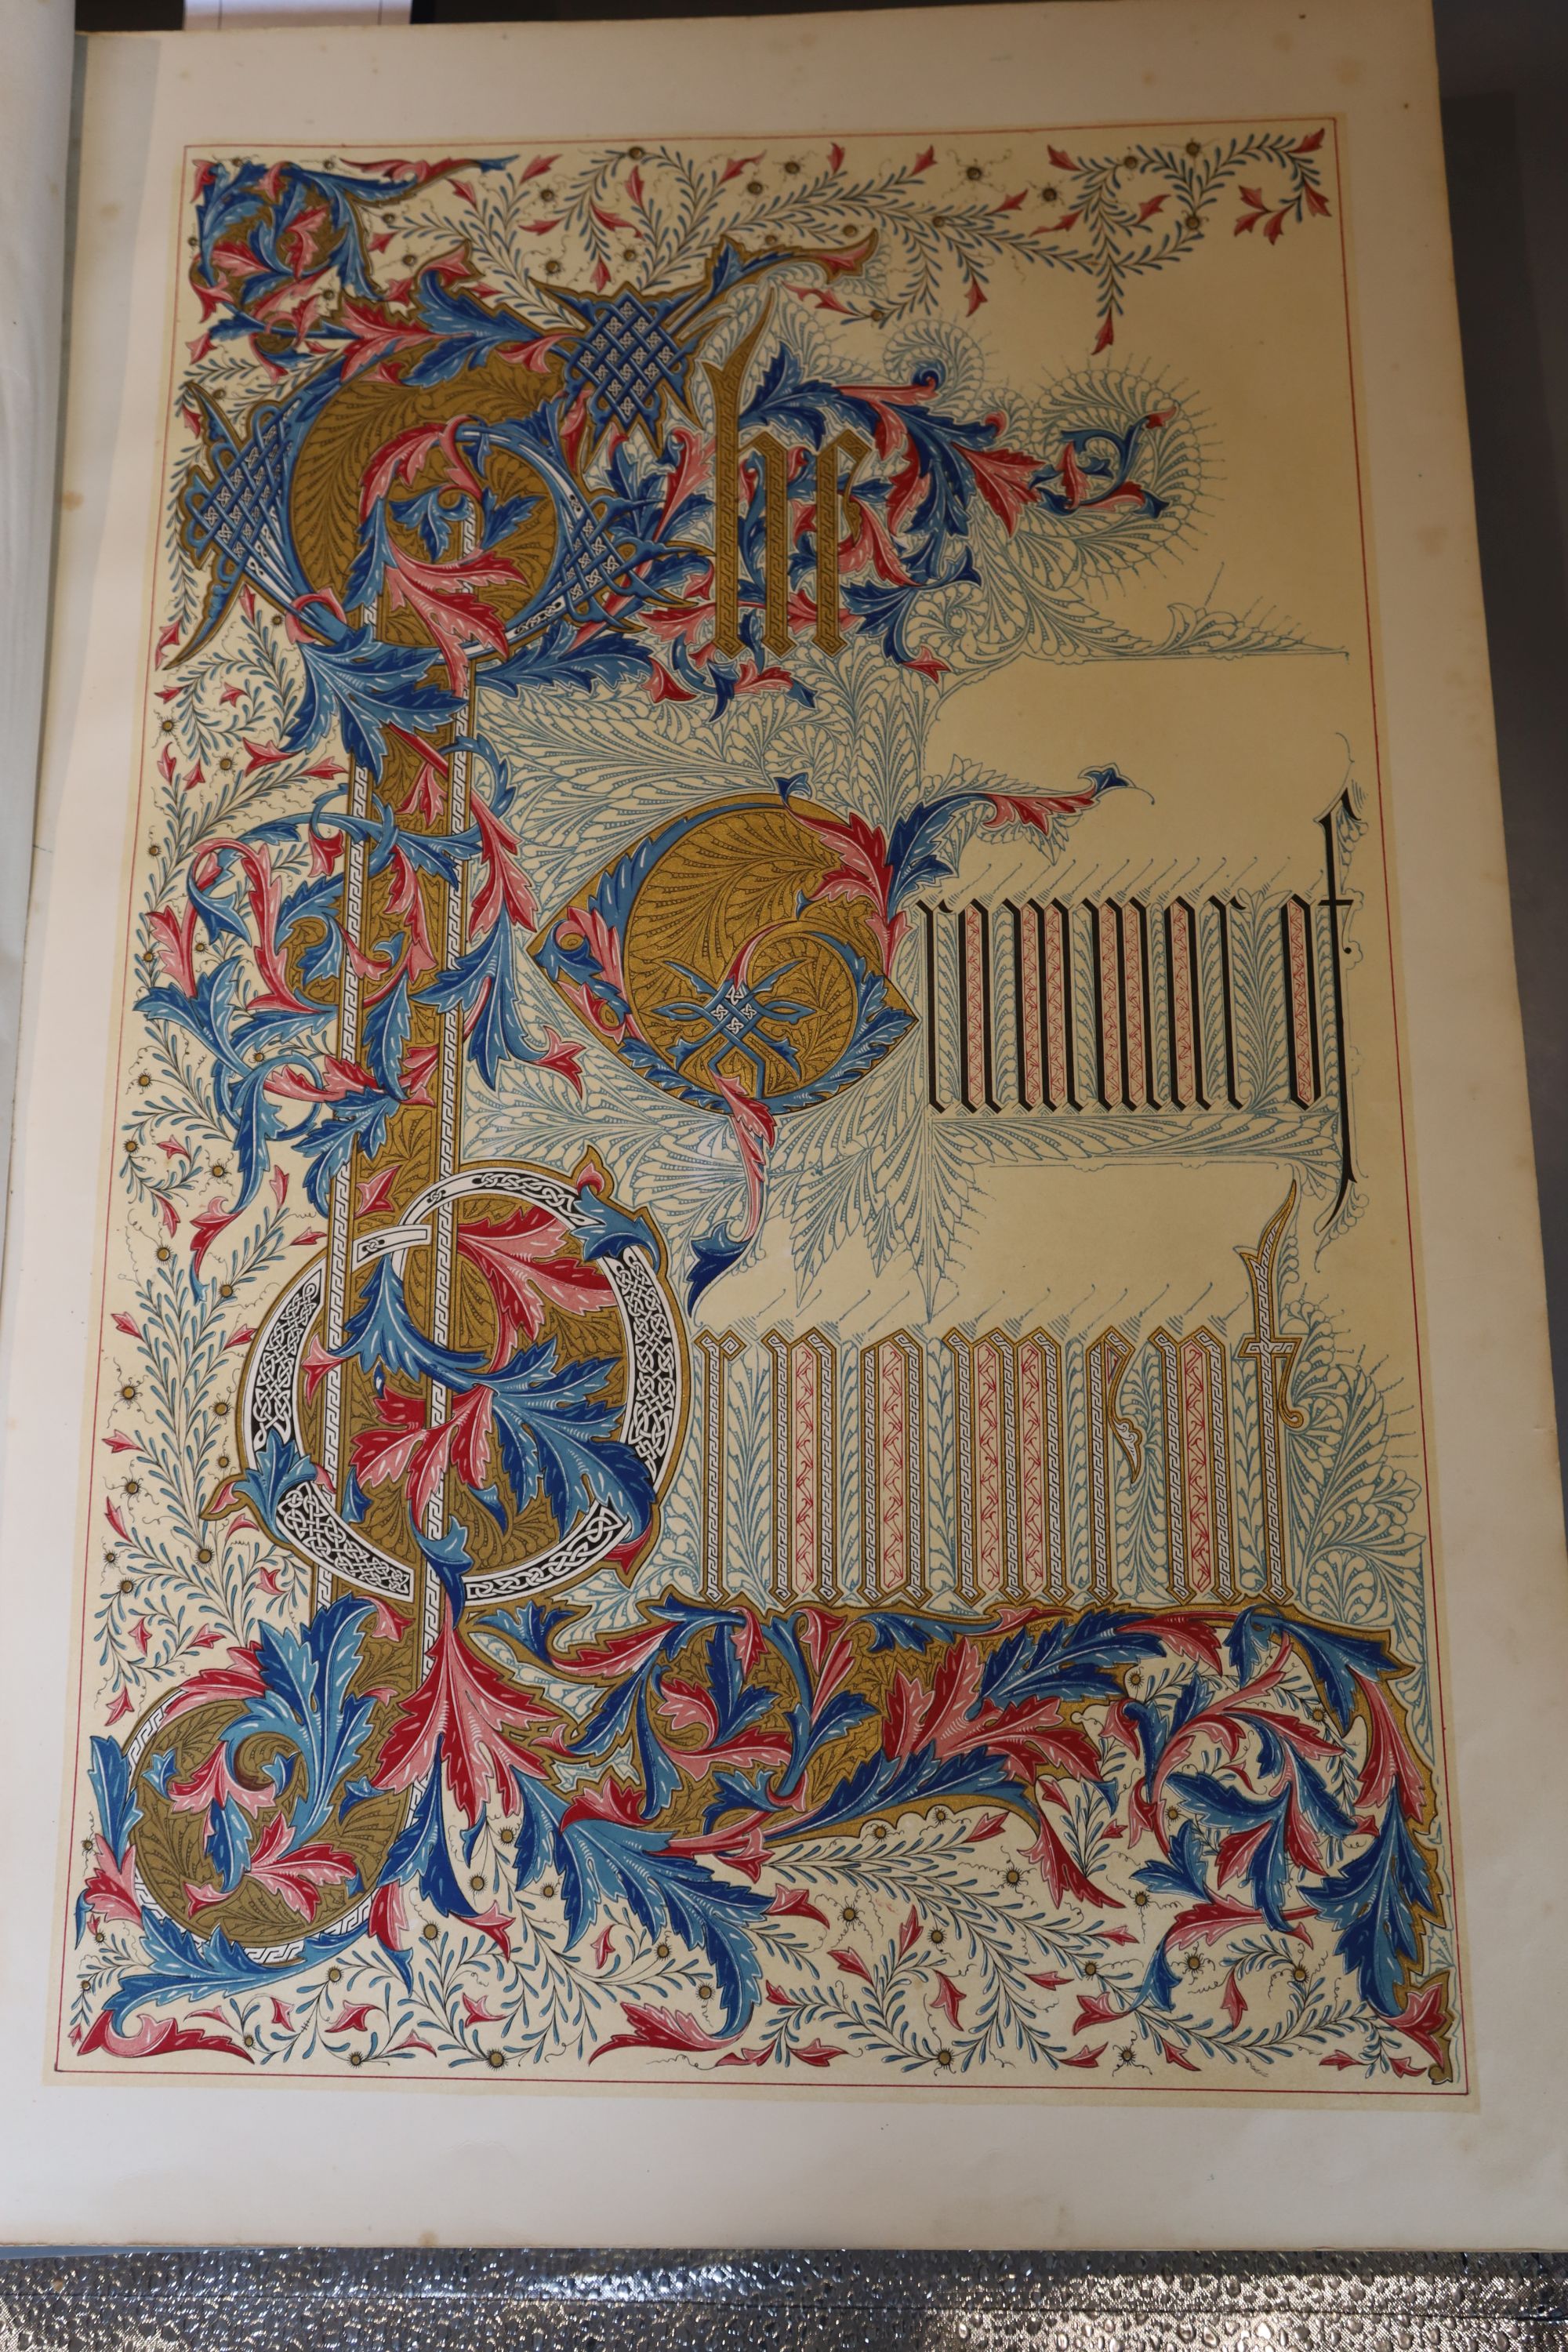 The
Grammar of
Ornament